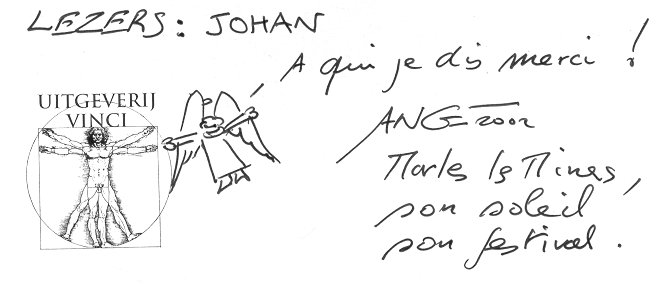 LEZERS: JOHAN
A qui je dis merci !
UITGEVERIJ
VINCI
ANGE 2002
Marles les Mines,
son soleil
son festival.